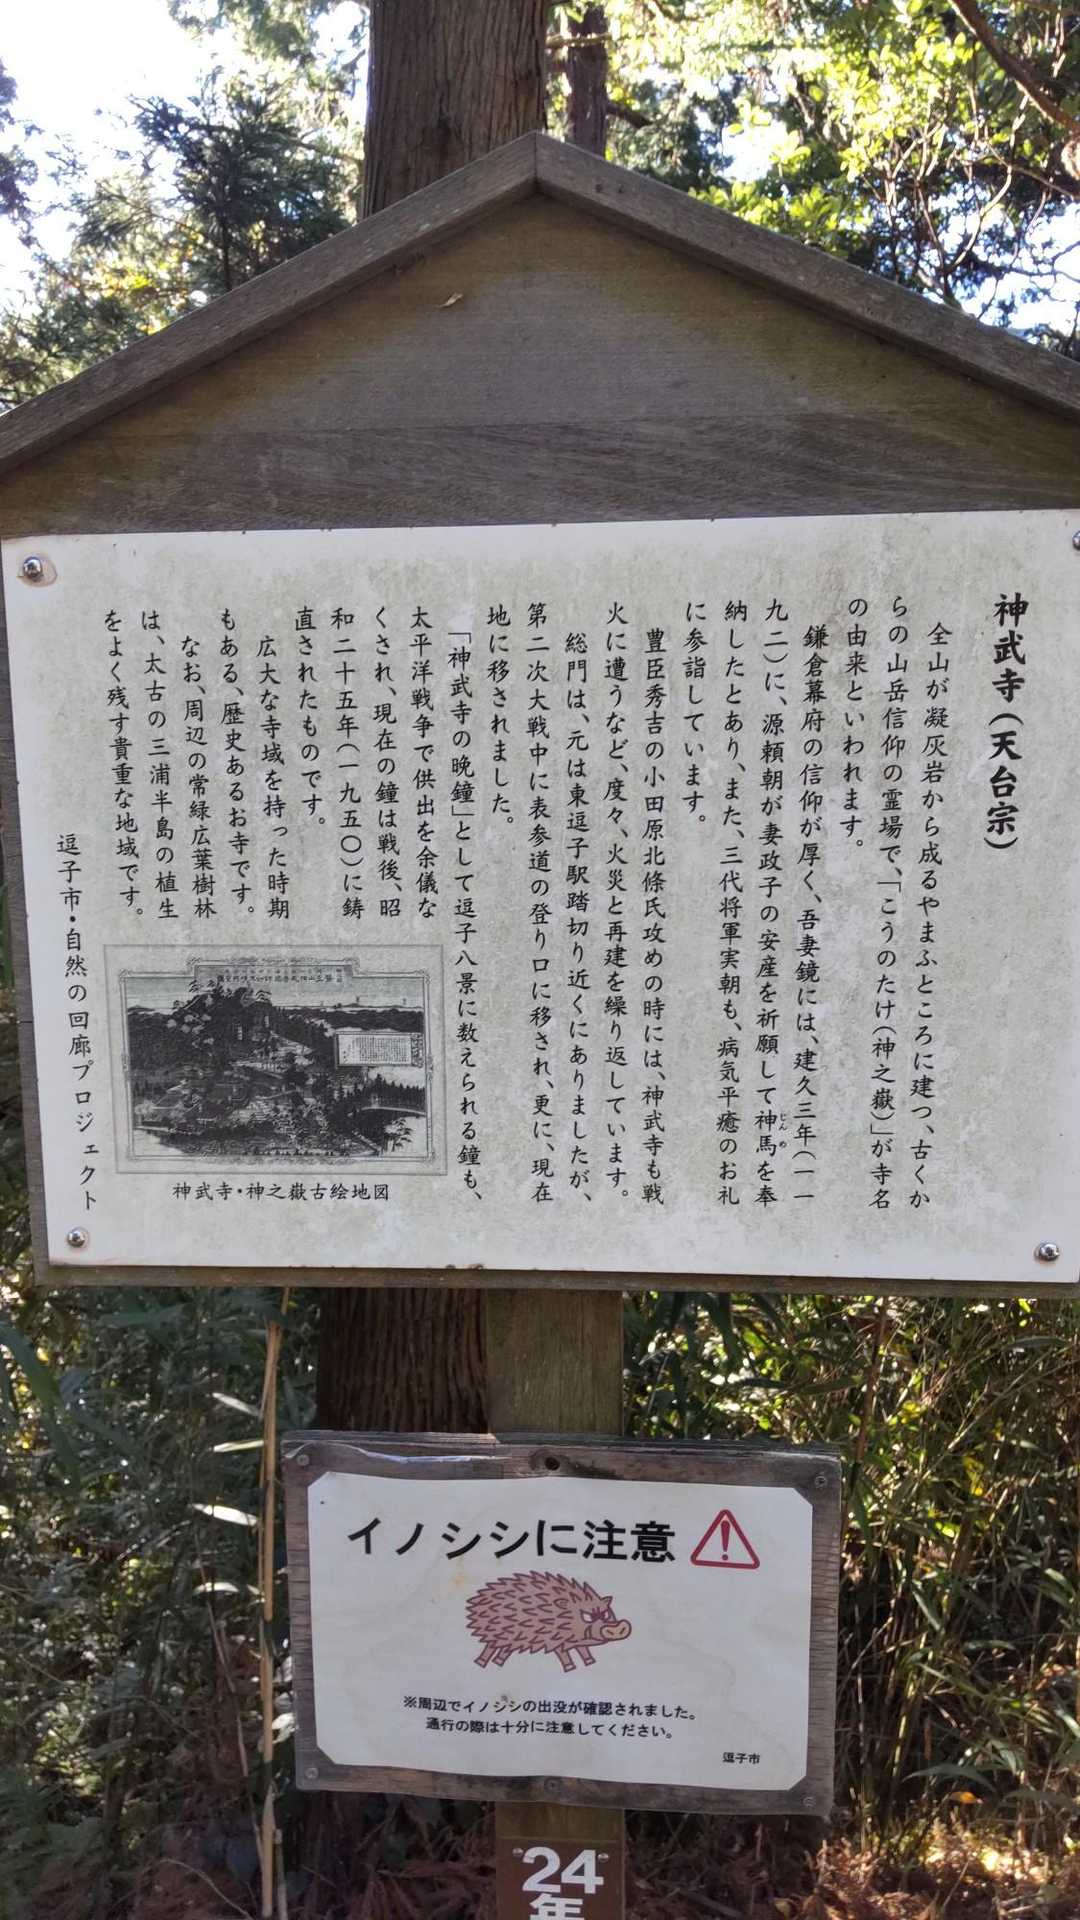 神武寺(天台宗)
全山が凝灰岩から成るやまふところに建つ、古くか
らの山岳信仰の霊場で、「こうのたけ(神之嶽)」が寺名
の由来といわれます。
鎌倉幕府の信仰が厚く、吾妻鏡には、建久三年(一一
九二)に、源頼朝が妻政子の安産を祈願して神馬を奉
じんめ
納したとあり、また、三代将軍実朝も、病気平癒のお礼
に参詣しています。
豊臣秀吉の小田原北條氏攻めの時には、神武寺も戦
火に遭うなど、度々、火災と再建を繰り返しています。
総門は、元は東逗子駅踏切り近くにありましたが、
第二次大戦中に表参道の登り口に移され、更に、現在
地に移されました。
「神武寺の晩鐘」として逗子八景に数えられる鐘も、
太平洋戦争で供出を余儀な
くされ、現在の鐘は戦後、昭
和二十五年(一九五〇)に鋳
直されたものです。
広大な寺域を持った時期
もある、歴史あるお寺です。
なお、周辺の常緑広葉樹林
は、太古の三浦半島の植生
をよく残す貴重な地域です。
逗子市・自然の回廊プロジェクト
神武寺・神之嶽古絵地図
イノシシに注意
※周辺でイノシシの出没が確認されました。
通行の際は十分に注意してください。
逗子市
24
年